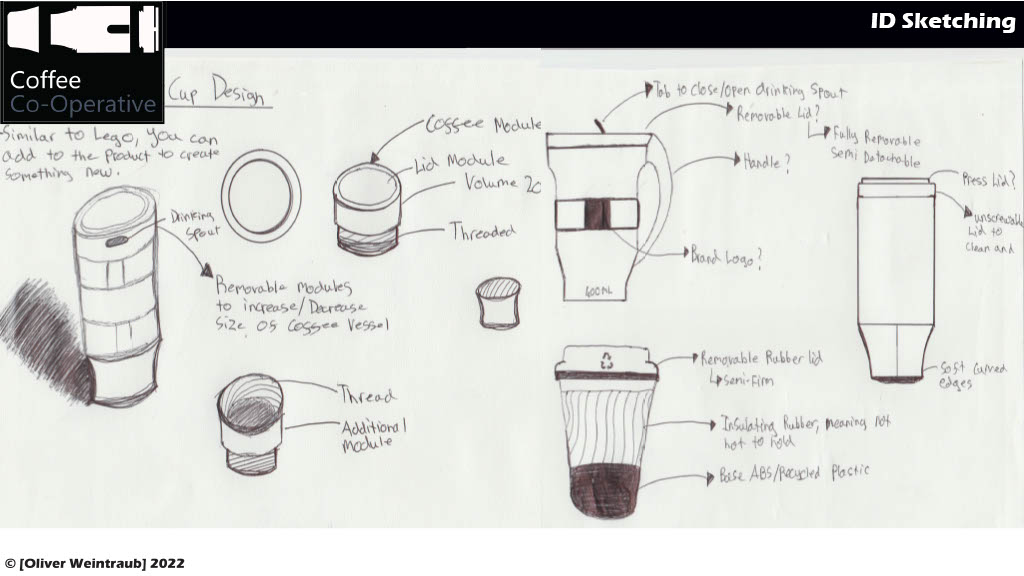 ID Sketching
Coffee
Co-Operative
Cup Design
Similar to Lego, you can
add to the product to create
something new.
Drinking
Spout
Removable modules
to increase/Decrease
size of coffee vessel
Coffee Module
Lid Module
Volume 20
Threaded
Thread
Additional
Module
Tab to close/open drinking spout
Removable Lid?
Fully Removable
Semi Detachable
Handle?
Brand Logo?
400ML
Press Lid?
unscrewable
Lid to
clean and
Soft curved
edges
Removable Rubber lid
Semi-firm
Insulating Rubber, meaning not
hot to hold
Base ABS/Recycled Plastic
© [Oliver Weintraub] 2022